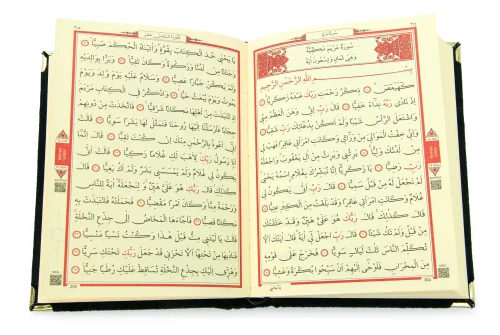 سُورَةُ مَرْيَمَ مَكِّيَّةٌ
وَهِيَ ثَمَانٍ وَتِسْعُونَ اٰيَةً
بِسْمِ اللّٰهِ الرَّحْمٰنِ الرَّحِيمِ
كٓهٰيٰعٓصٓ ذِكْرُ رَحْمَتِ رَبِّكَ عَبْدَهُ زَكَرِيَّا
اِذْ نَادٰى رَبَّهُ نِدَٓاءً خَفِيًّا قَالَ رَبِّ اِنِّى وَهَنَ الْعَظْمُ مِنِّى
وَاشْتَعَلَ الرَّاْسُ شَيْبًا وَلَمْ اَكُنْ بِدُعَٓائِكَ رَبِّ شَقِيًّا
وَاِنِّى خِفْتُ الْمَوَالِىَ مِنْ وَرَٓاءِى وَكَانَتِ امْرَاَتِى عَاقِرًا فَهَبْ لِى
مِنْ لَدُنْكَ وَلِيًّا يَرِثُنِى وَيَرِثُ مِنْ اٰلِ يَعْقُوبَ وَاجْعَلْهُ
رَبِّ رَضِيًّا يَا زَكَرِيَّٓا اِنَّا نُبَشِّرُكَ بِغُلَامٍ اسْمُهُ يَحْيٰى
لَمْ نَجْعَلْ لَهُ مِنْ قَبْلُ سَمِيًّا قَالَ رَبِّ اَنّٰى يَكُونُ لِى
غُلَامٌ وَكَانَتِ امْرَاَتِى عَاقِرًا وَقَدْ بَلَغْتُ مِنَ الْكِبَرِ عِتِيًّا
قَالَ كَذٰلِكَ قَالَ رَبُّكَ هُوَ عَلَىَّ هَيِّنٌ وَقَدْ خَلَقْتُكَ
مِنْ قَبْلُ وَلَمْ تَكُ شَيْـًٔا قَالَ رَبِّ اجْعَلْ لِٓى اٰيَةً قَالَ اٰيَتُكَ اَلَّا
تُكَلِّمَ النَّاسَ ثَلٰثَ لَيَالٍ سَوِيًّا فَخَرَجَ عَلٰى قَوْمِهِ
مِنَ الْمِحْرَابِ فَاَوْحٰٓى اِلَيْهِمْ اَنْ سَبِّحُوا بُكْرَةً وَعَشِيًّا
يَا يَحْيٰى
يَا يَحْيٰى خُذِ الْكِتَابَ بِقُوَّةٍ وَاٰتَيْنَاهُ الْحُكْمَ صَبِيًّا
وَحَنَانًا مِنْ لَدُنَّا وَزَكٰوةً وَكَانَ تَقِيًّا وَبَرًّا بِوَالِدَيْهِ
وَلَمْ يَكُنْ جَبَّارًا عَصِيًّا وَسَلَامٌ عَلَيْهِ يَوْمَ وُلِدَ وَيَوْمَ
يَمُوتُ وَيَوْمَ يُبْعَثُ حَيًّا وَاذْكُرْ فِى الْكِتَابِ مَرْيَمَ
اِذِ انْتَبَذَتْ مِنْ اَهْلِهَا مَكَانًا شَرْقِيًّا فَاتَّخَذَتْ مِنْ دُونِهِمْ
حِجَابًا فَاَرْسَلْنَٓا اِلَيْهَا رُوحَنَا فَتَمَثَّلَ لَهَا بَشَرًا سَوِيًّا قَالَتْ
اِنِّٓى اَعُوذُ بِالرَّحْمٰنِ مِنْكَ اِنْ كُنْتَ تَقِيًّا قَالَ اِنَّمَٓا
اَنَا رَسُولُ رَبِّكِ لِاَهَبَ لَكِ غُلَامًا زَكِيًّا قَالَتْ اَنّٰى
يَكُونُ لِى غُلَامٌ وَلَمْ يَمْسَسْنِى بَشَرٌ وَلَمْ اَكُ بَغِيًّا قَالَ
كَذٰلِكِ قَالَ رَبُّكِ هُوَ عَلَىَّ هَيِّنٌ وَلِنَجْعَلَهُ اٰيَةً لِلنَّاسِ
وَرَحْمَةً مِنَّا وَكَانَ اَمْرًا مَقْضِيًّا فَحَمَلَتْهُ فَانْتَبَذَتْ بِهِ
مَكَانًا قَصِيًّا فَاَجَٓاءَهَا الْمَخَاضُ اِلٰى جِذْعِ النَّخْلَةِ
قَالَتْ يَا لَيْتَنِى مِتُّ قَبْلَ هٰذَا وَكُنْتُ نَسْيًا مَنْسِيًّا
فَنَادٰيهَا مِنْ تَحْتِهَٓا اَلَّا تَحْزَنِى قَدْ جَعَلَ رَبُّكِ تَحْتَكِ سَرِيًّا
وَهُزِّٓى اِلَيْكِ بِجِذْعِ النَّخْلَةِ تُسَاقِطْ عَلَيْكِ رُطَبًا جَنِيًّا